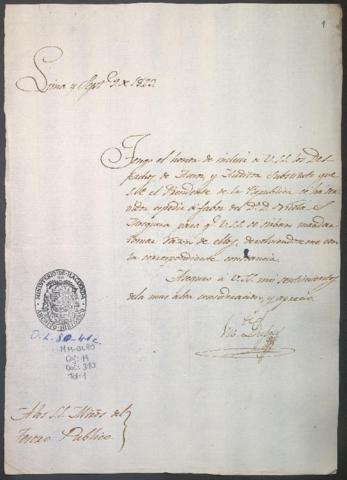 1
Lima y Sept.e 9 de 1823.
Tengo el honor de incluir a V.SS. los Des
pachos de Honor, y Auditor que
S.E. el Presidente de la Republica se ha ser
vido expedir a favor del D.D.
para q.e V.SS. se sirban mandar
tomar razon de ellos, devolviendome con
la correspondiente constancia.
a V.SS. mis sentimientos
de la mas alta consideracion, y aprecio.
MINISTERIO DE HACIENDA
O.L. 80-41c
MH-OL80
Caj: 11
Doc: 310
Fol: 1
A los SS. Minõs del
Tesoro Publico.